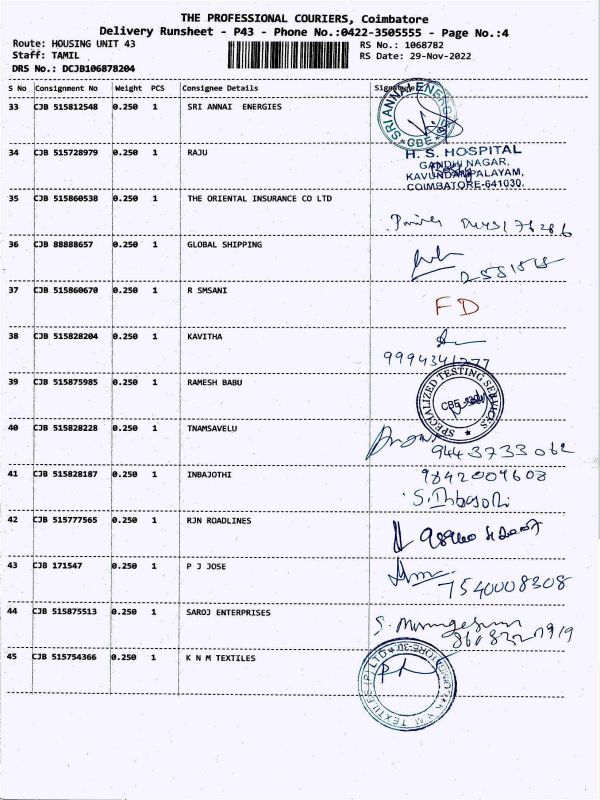 THE PROFESSIONAL COURIERS, Coimbatore
Delivery Runsheet - P43 - Phone No.:0422-3505555 - Page No.:4
Route: HOUSING UNIT 43 RS No.: 1068782
Staff: TAMIL RS Date: 29-Nov-2022
DRS No.: DCJB106878204
S No Consignment No Weight PCS Consignee Details
33 CJB 515812548 0.250 1 SRI ANNAI ENERGIES
SRI ANNAI ENERG
CBE
34 CJB 515728979 0.250 1 RAJU
H. S. HOSPITAL
GANDHI NAGAR,
KAVUNDAMPALAYAM,
COIMBATORE-641030.
35 CJB 515860538 0.250 1 THE ORIENTAL INSURANCE CO LTD
36 CJB 88888657 0.250 1 GLOBAL SHIPPING
37 CJB 515860670 0.250 1 R SMSANI
FD
38 CJB 515828204 0.250 1 KAVITHA
9994341277
39 CJB 515875985 0.250 1 RAMESH BABU
SPECIALIZED TESTING SERVICES
CBE
40 CJB 515828228 0.250 1 TNAMSAVELU
9443733062
41 CJB 515828187 0.250 1 INBAJOTHI
9842009608
42 CJB 515777565 0.250 1 RJN ROADLINES
43 CJB 171547 0.250 1 P J JOSE
7540008308
44 CJB 515875513 0.250 1 SAROJ ENTERPRISES
45 CJB 515754366 0.250 1 K N M TEXTILES
K N M TEXTILES (P) LTD